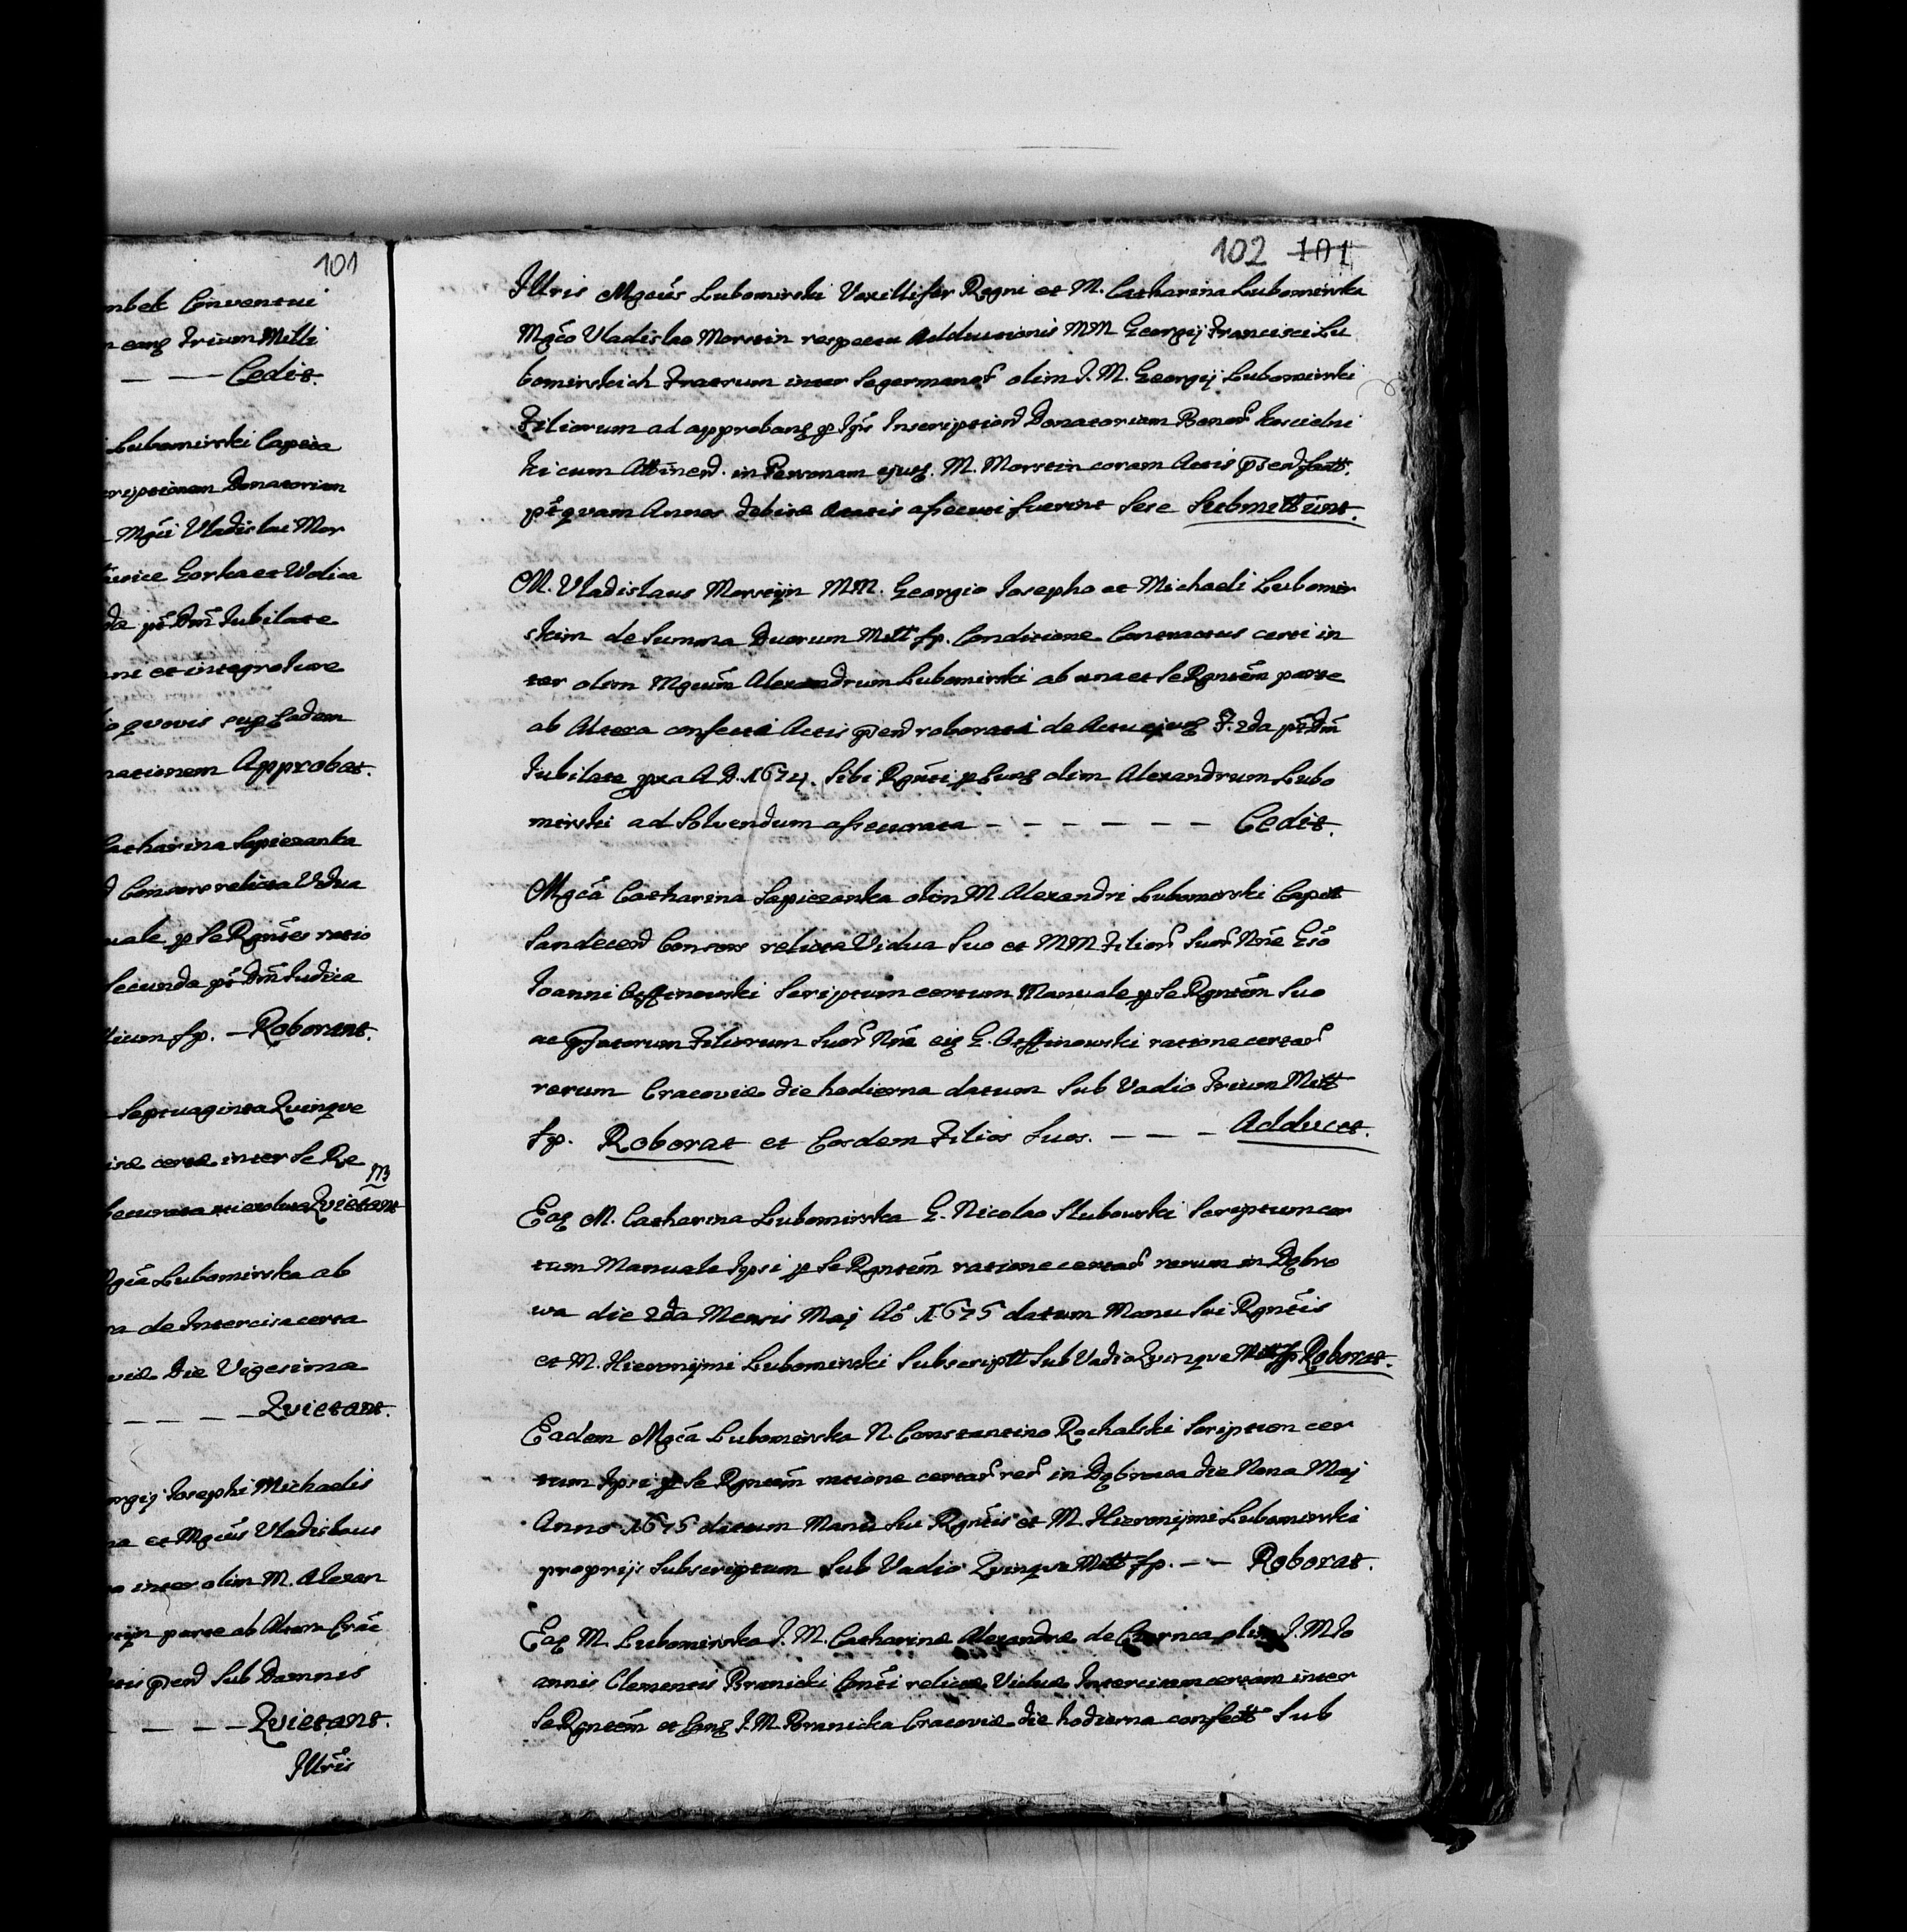 101
mbek Conventui
n eanq Trium Milli
— — Cedit.
Lubomirski Capita
criptionem Donatoriam
Mgci Vladislai Mor
Gorka et Wolica
da pt Dnm Jubilate
ni et integro Jure
quovis sup Eadem
nationem Approbat.
Catharina Sapiezanka
d Consors relicta Vidua
uale p Se Rgntes ratio
Secunda pt Dnm Judica
lium fp. — Roborant.
Septuaginta Quinque
certa inter Se Re
Quietant
Mgca Lubomirska ab
ra de Intercisa certa
viæ Die Vigesima
— — — — Quietant.
orgij Josephi Michaelis
na et Mgcus Vladislaus
o inter olim M. Alexan
tijn parte ab Altera Crac
ctis pend Sub Damnis
— — — Quietant.
Illris
102 101
Illris Mgcus Lubomirski Vexillifer Regni et M. Catharina Lubomirska
Mgco Vladislao Morstin respectu Adductionis MM Georgij Francisci Lu
bomirskich Fratrum inter Se germanor olim J. M. Georgij Lubomirski
Filiorum ad approbanq p Inscription Donatoriam Bonor Koscielni
ki cum Attinend. in Personam ejusq. M. Morstin coram Actis psend fact.
pt quam Annos debitæ Ætatis assecuti fuerint Sese Submittunt.
M. Vladislaus Morstijn MM. Georgio Josepho et Michaeli Lubomir
skim de Summa Duorum Mill fp. Conditione Contractus certi in
ter olim Mgcum Alexandrum Lubomirski ab una et Se Rgntem parte
ab Altera confecti Actis psend roborati de Actu ejusq F. 2da pt Dnm
Jubilate pxa A. D. 1674. Sibi Rgnti p Eunq olim Alexandrum Lubo
mirski ad Solvendum assecurata — — — — — — Cedit.
Mgca Catharina Sapiezanka olim M Alexandri Lubomirski Capit
Sandecen Consors relicta Vidua Suo et MM Filior Suor Nne Gso
Joanni Scriptum certum Manuale p Se Rgntem Suo
ac pfatorum Filiorum Suor Nne eiq G. ratione certar
rerum Cracoviæ die hodierna datum Sub Vadio Trium Mill
fp. Roborat et Eosdem Filios Suos. — — — Adducit.
Eaq M. Catharina Lubomirska G. Nicolao Slubowski Scriptum cer
tum Manuale Ipsi p Se Rgntem ratione certar rerum in Dąbro
wa die 2da Mensis Maj Ao 1675 datum Manu Sui Rgntis
et M. Hieronijmi Lubomirski Subscriptt Sub Vadio Quinque Mill fp Roborat.
Eadem Mgca Lubomirska N. Constantino Rochalski Scriptum cer
tum Ipsi p Se Rgntem ratione certar rer in Dąbrowa die Nona Maj
Anno 1675 datum Manu Sui Rgntis et M. Hieronijmi Lubomirski
proprijs Subscriptum Sub Vadio Quinque Mill fp. — — Roborat.
Eaq M. Lubomirska J. M. Catharinæ Alexandræ de Czarnca olim J. M Jo
annis Clementis Branicki Consti relictæ Viduæ Intercisam certam inter
Se Rgntem et Eanq J. M. Branicka Cracoviæ die hodierna confectt Sub